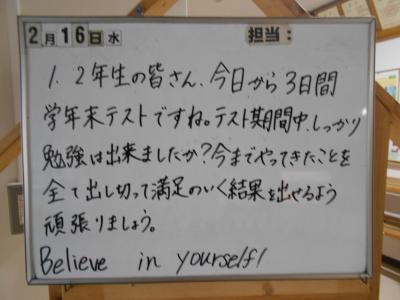 2月16日水 担当:
1. 2年生の皆さん、今日から3日間
学年末テストですね。テスト期間中、しっかり
勉強は出来ましたか?今までやってきたことを
全て出し切って満足のいく結果を出せるよう
頑張りましょう。
Believe in yourself!